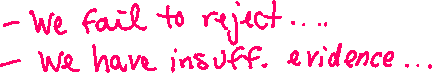 - We fail to reject....
- We have insuff. evidence...